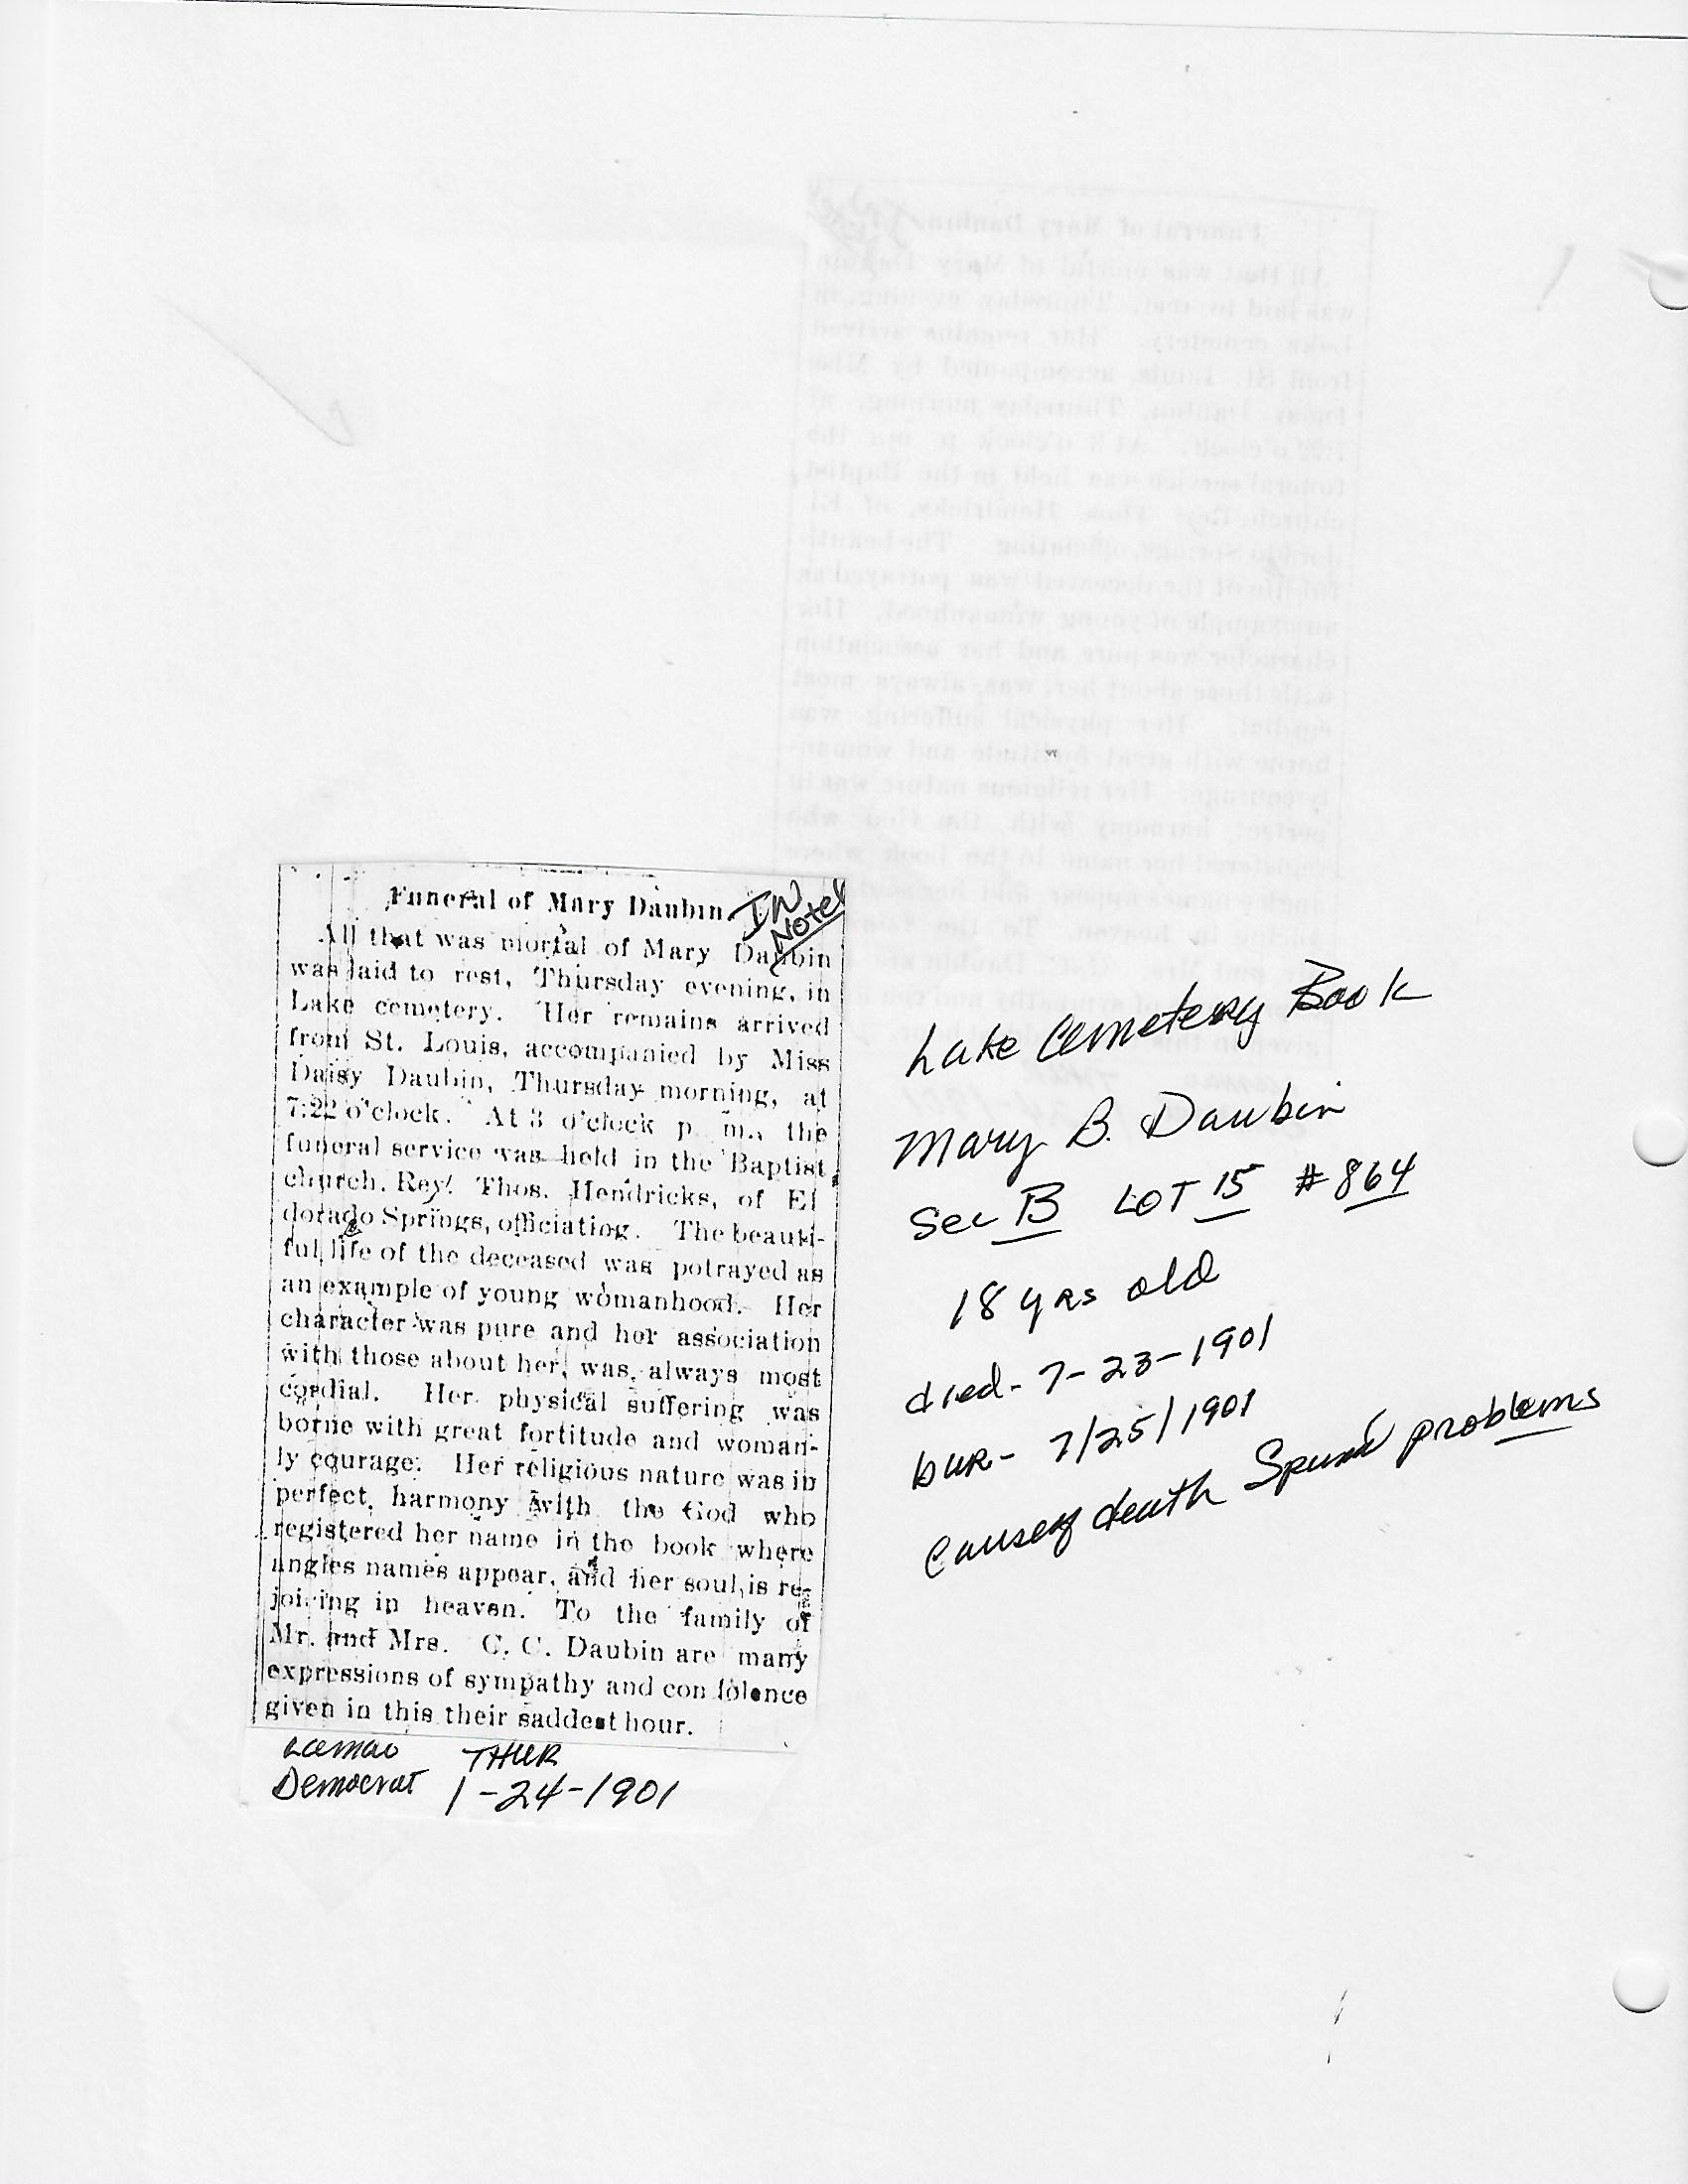 Funeral of Mary Daubin.
IN
Note
All that was mortal of Mary Daubin
was laid to rest, Thursday evening, in
Lake cemetery. Her remains arrived
from St. Louis, accompanied by Miss
Daisy Daubin, Thursday morning, at
7:22 o'clock. At 3 o'clock p. m., the
funeral service was held in the Baptist
church, Rev. Thos. Hendricks, of El
dorado Springs, officiating. The beauti-
ful life of the deceased was potrayed as
an example of young womanhood. Her
character was pure and her association
with those about her, was, always most
cordial. Her physical suffering was
borne with great fortitude and woman-
ly courage. Her religious nature was in
perfect, harmony with the God who
registered her name in the book where
angles names appear, and her soul, is re-
joicing in heaven. To the family of
Mr. and Mrs. C. C. Daubin are many
expressions of sympathy and condolence
given in this their saddest hour.
Lamar THUR
Democrat 1-24-1901
Lake Cemetery Book
Mary B. Daubin
Sec B LOT 15 #864
18 yrs old
died- 7-23-1901
bur- 7/25/1901
Cause of death problems